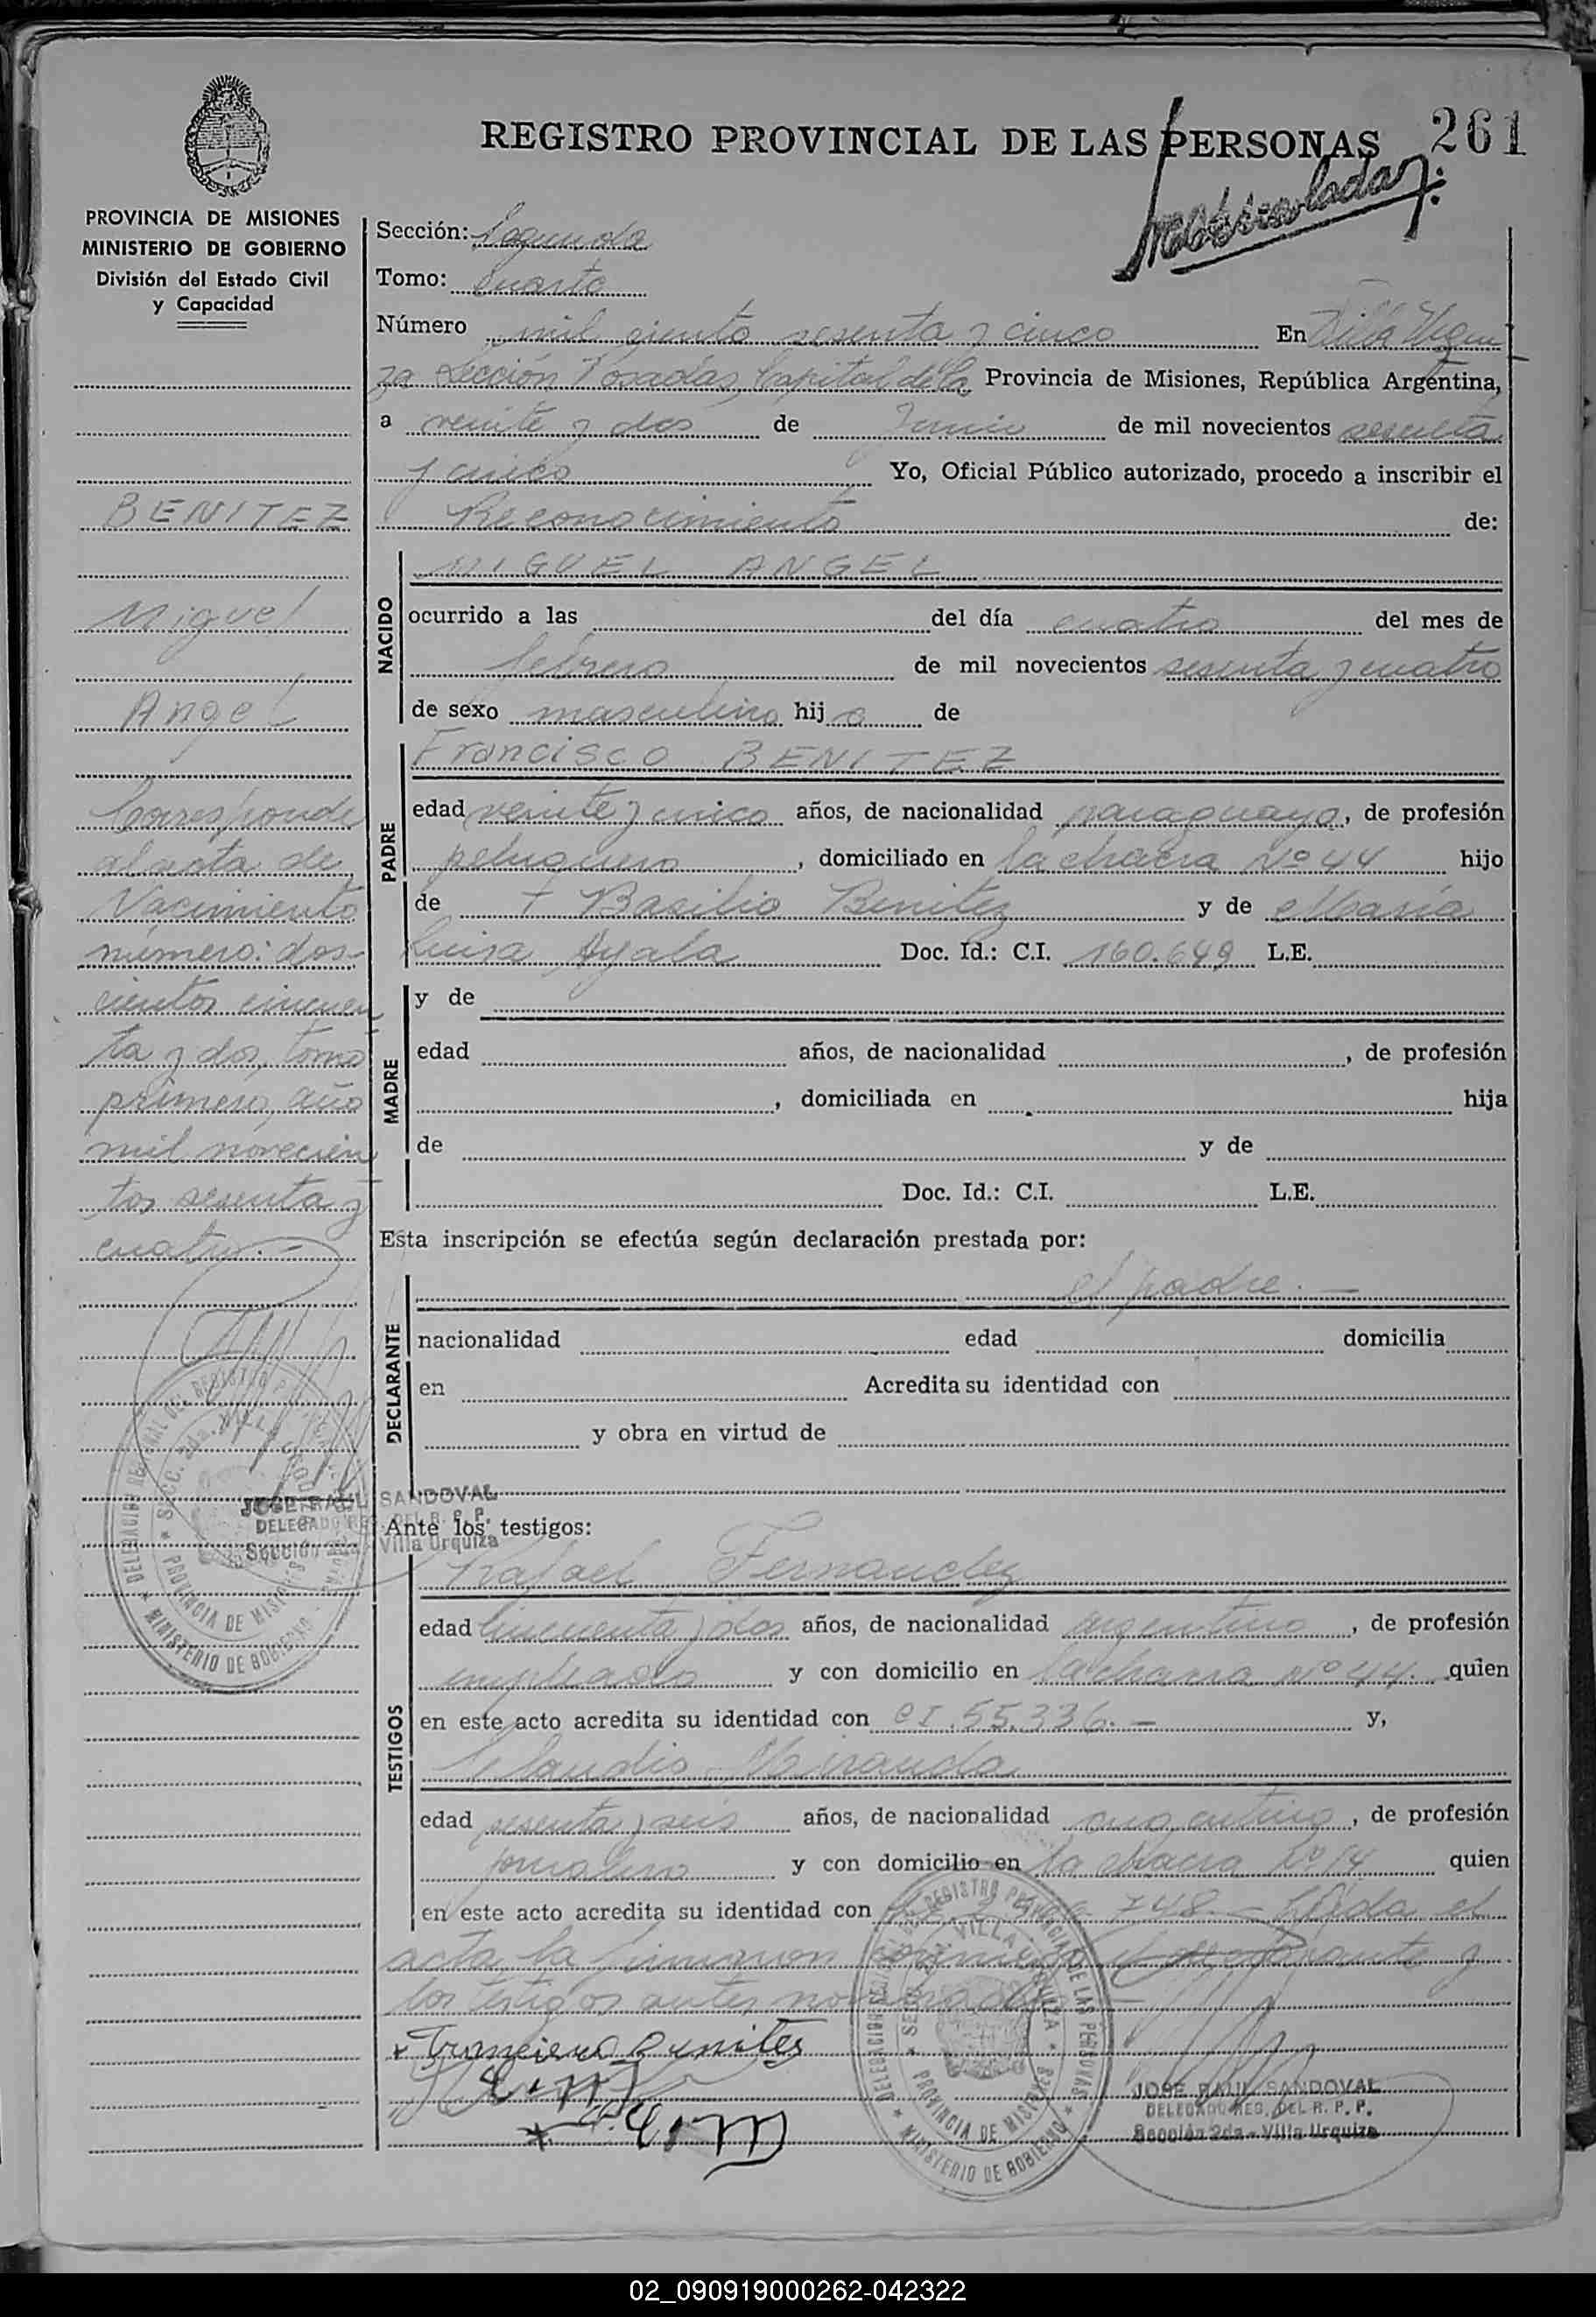 261
REGISTRO PROVINCIAL DE LAS PERSONAS
PROVINCIA DE MISIONES
MINISTERIO DE GOBIERNO
División del Estado Civil
y Capacidad
BENITEZ
Miguel
Angel
Corresponde
al acta de
Nacimiento
número: dos-
cientos cincuen
ta y dos, tomo
primero, año
mil novecien
tos sesenta y
cuatro.-
Sección: Segunda
Tomo: Cuarto
Número mil ciento sesenta y cinco En Villa Urqui
za Sección Posadas, Capital de la Provincia de Misiones, República Argentina,
a veinte y dos de Junio de mil novecientos sesenta
y cinco Yo, Oficial Público autorizado, procedo a inscribir el
Reconocimiento de:
NACIDO
MIGUEL ANGEL
ocurrido a las del día cuatro del mes de
febrero de mil novecientos sesenta y cuatro
de sexo masculino hijo de
PADRE
Francisco BENITEZ
edad veinte y cinco años, de nacionalidad paraguayo, de profesión
peluquero, domiciliado en la chacra Nº 44 hijo
de + Basilio Benitez y de María
Luisa Ayala Doc. Id.: C.I. 160.649 L.E.
MADRE
y de
edad años, de nacionalidad , de profesión
, domiciliada en hija
de y de
Doc. Id.: C.I. L.E.
Esta inscripción se efectúa según declaración prestada por:
DECLARANTE
el padre.-
nacionalidad edad domicilia
en Acredita su identidad con
y obra en virtud de
JOSE RAUL SANDOVAL
DELEGADO REG. DEL R. P. P.
Sección 2da - Villa Urquiza
Ante los testigos:
TESTIGOS
Rafael Fernandez
edad cincuenta y dos años, de nacionalidad argentino, de profesión
empleado y con domicilio en la chacra Nº 44. quien
en este acto acredita su identidad con CI. 55.336.- y,
Claudio Miranda
edad sesenta y seis años, de nacionalidad argentino, de profesión
jornalero y con domicilio en la chacra Nº 14 quien
en este acto acredita su identidad con 748.- Leída el
acta la firmaron conmigo el declarante y
los testigos antes nombrados.-
Francisco Benites
DELEGACION REGIONAL DEL REGISTRO PROVINCIAL DE LAS PERSONAS
SECC. 2da. VILLA URQUIZA
PROVINCIA DE MISIONES
MINISTERIO DE GOBIERNO
JOSE RAUL SANDOVAL
DELEGADO REG. DEL R. P. P.
Sección 2da - Villa Urquiza
02_090919000262-042322